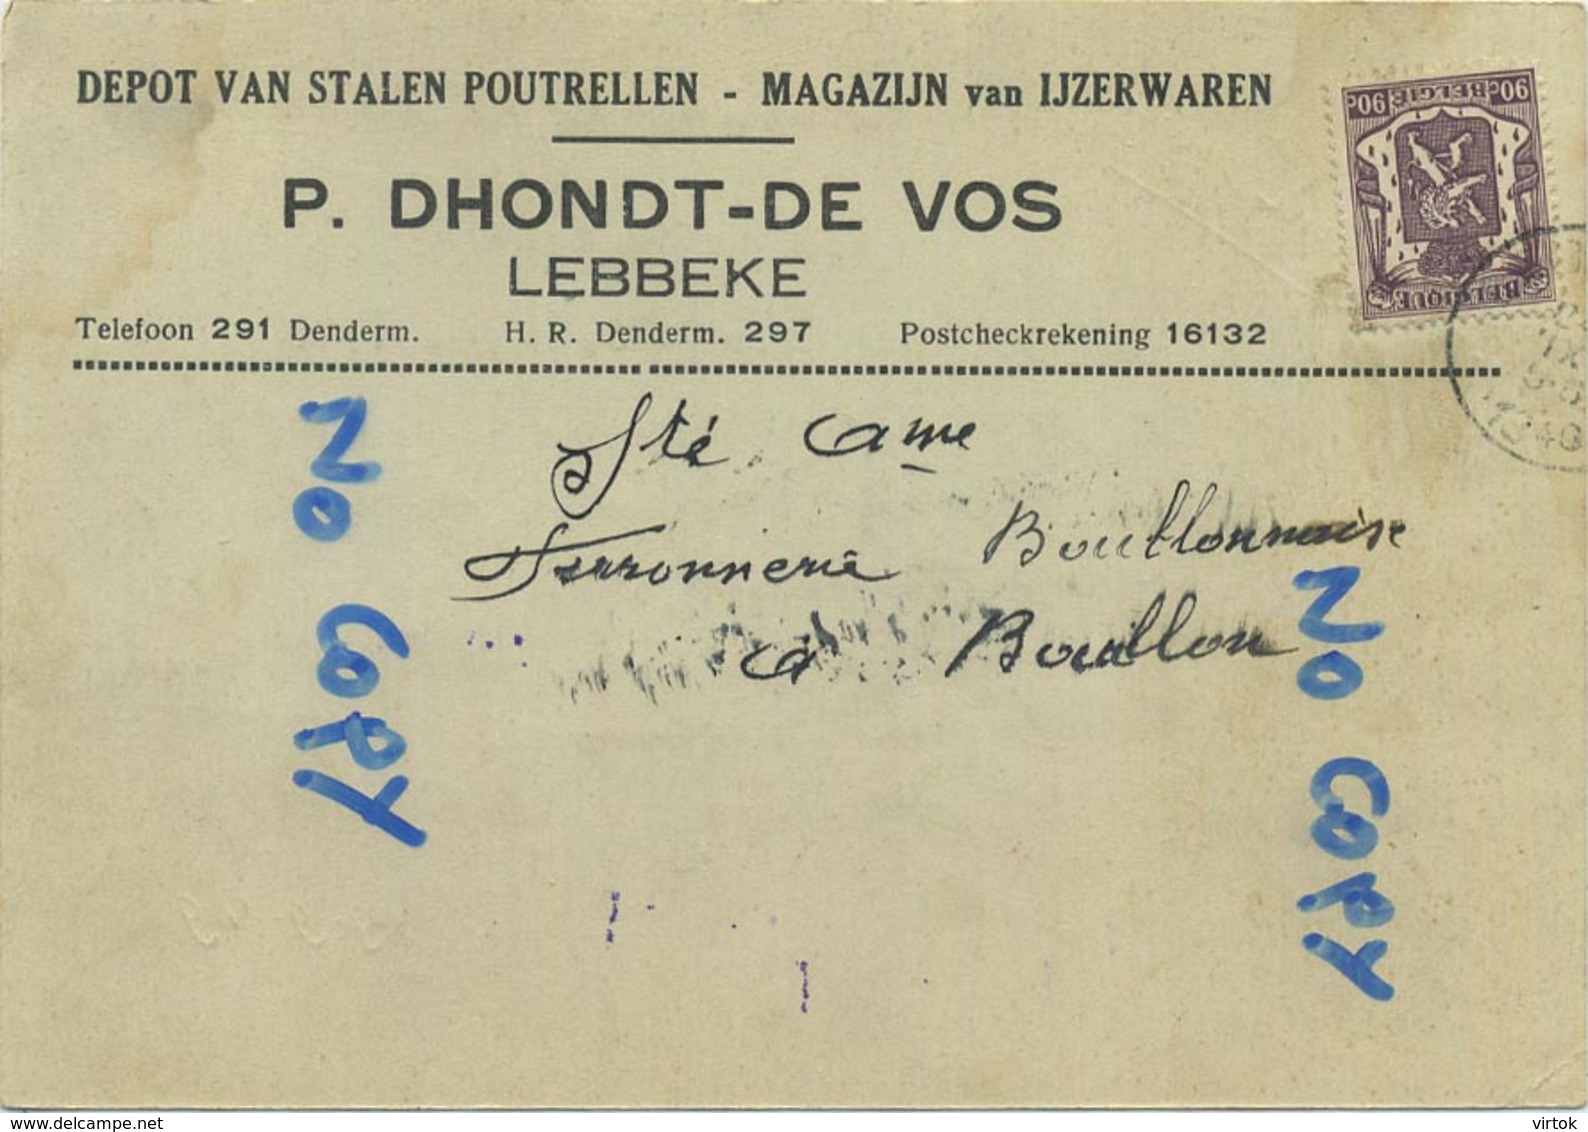 DEPOT VAN STALEN POUTRELLEN - MAGAZIJN van IJZERWAREN
P. DHONDT-DE VOS
LEBBEKE
Telefoon 291 Denderm. H. R. Denderm. 297 Postcheckrekening 16132
90c BELGIE 90c
BELGIQUE
Sté ame
Ferronnerie Bouillonnaise
à Bouillon
No Copy
No Copy
delcampe.net
virtok